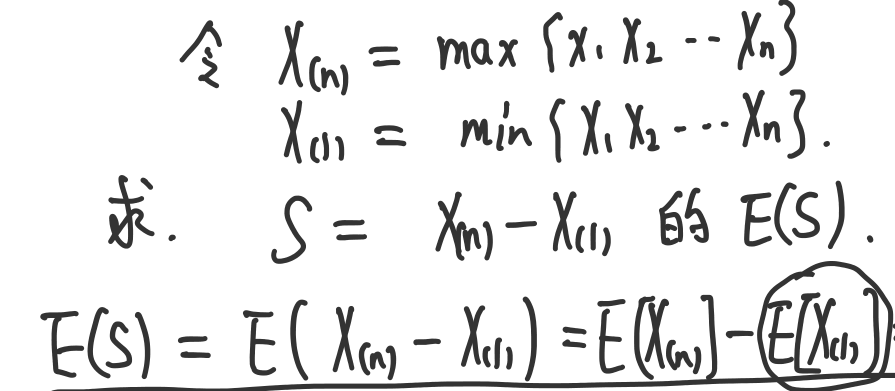 令 X(n) = max {X1 X2 ... Xn}
X(1) = min {X1 X2 ... Xn}.
求. S = X(n) - X(1) 的 E(S).
E(S) = E( X(n) - X(1) ) = E[X(n)] - E[X(1)] =